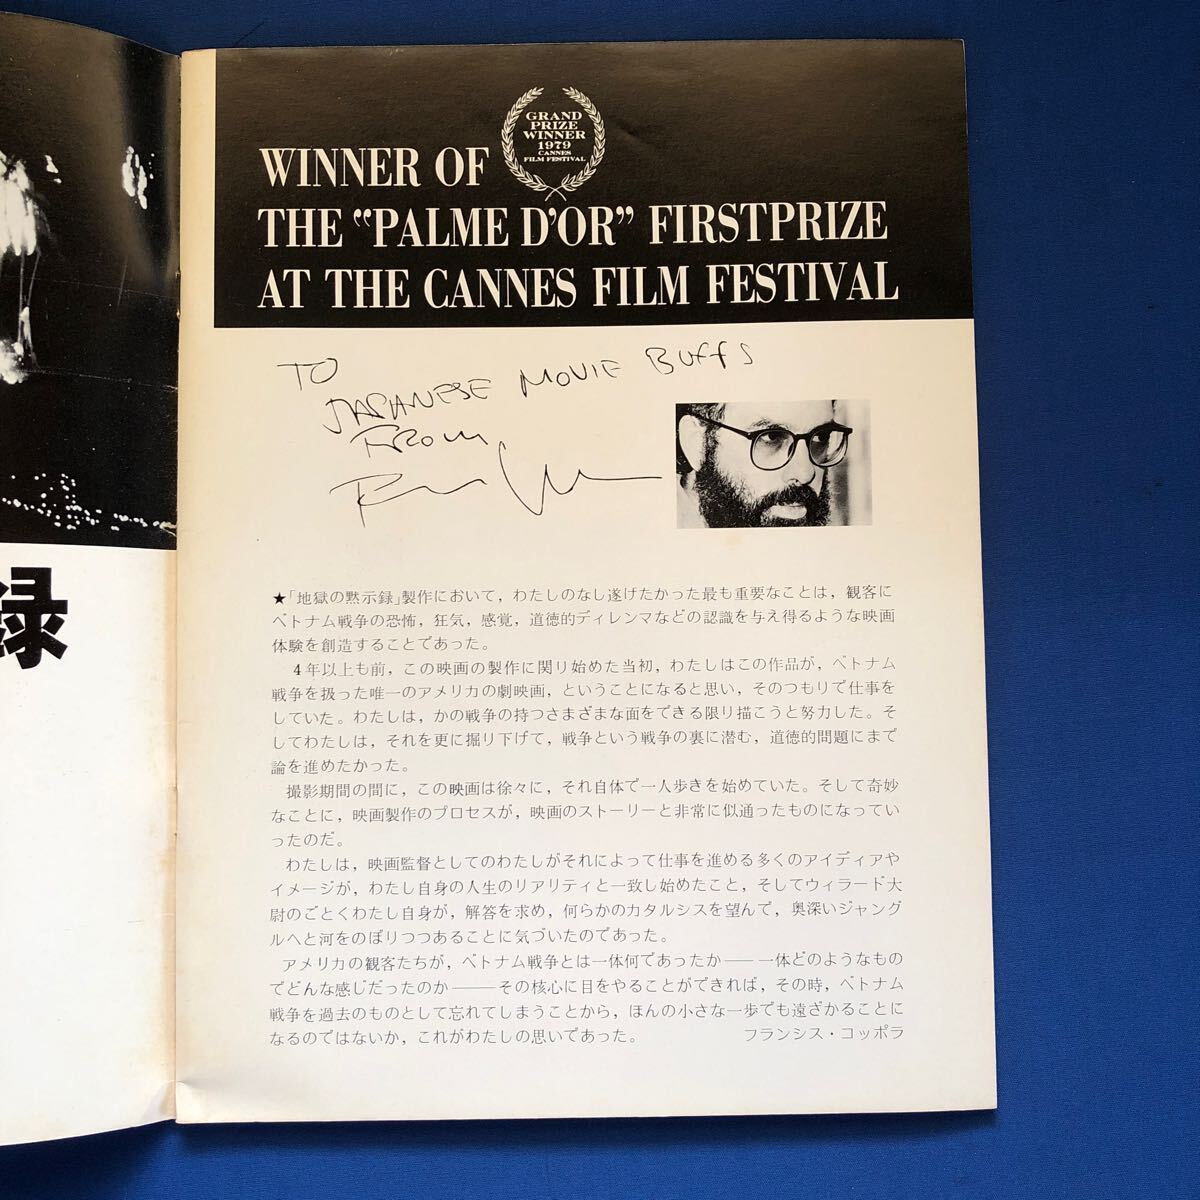 GRAND
PRIZE
WINNER
1979
CANNES
FILM FESTIVAL
WINNER OF
THE “PALME D'OR” FIRSTPRIZE
AT THE CANNES FILM FESTIVAL
TO
JAPANESE MOVIE BUFFS
FROM
録
★「地獄の黙示録」製作において，わたしのなし遂げたかった最も重要なことは，観客に
ベトナム戦争の恐怖，狂気，感覚，道徳的ディレンマなどの認識を与え得るような映画
体験を創造することであった。
4年以上も前，この映画の製作に関り始めた当初，わたしはこの作品が，ベトナム
戦争を扱った唯一のアメリカの劇映画，ということになると思い，そのつもりで仕事を
していた。わたしは，かの戦争の持つさまざまな面をできる限り描こうと努力した。そ
してわたしは，それを更に掘り下げて，戦争という戦争の裏に潜む，道徳的問題にまで
論を進めたかった。
撮影期間の間に，この映画は徐々に，それ自体で一人歩きを始めていた。そして奇妙
なことに，映画製作のプロセスが，映画のストーリーと非常に似通ったものになってい
ったのだ。
わたしは，映画監督としてのわたしがそれによって仕事を進める多くのアイディアや
イメージが，わたし自身の人生のリアリティと一致し始めたこと，そしてウィラード大
尉のごとくわたし自身が，解答を求め，何らかのカタルシスを望んで，奥深いジャング
ルへと河をのぼりつつあることに気づいたのであった。
アメリカの観客たちが，ベトナム戦争とは一体何であったか――一体どのようなもの
でどんな感じだったのか――その核心に目をやることができれば，その時，ベトナム
戦争を過去のものとして忘れてしまうことから，ほんの小さな一歩でも遠ざかることに
なるのではないか，これがわたしの思いであった。 フランシス・コッポラ